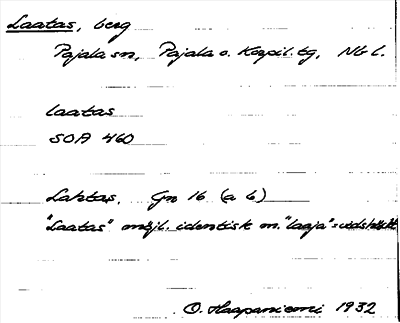 Laatas, berg
Pajala sn, Pajala o. Korpil. tg, Nb l.
laatas
SOA 460
Lahtas, Gn 16 (a b)
"Laatas" möjl. identisk m. "laaja" =
O. Haapaniemi 1932